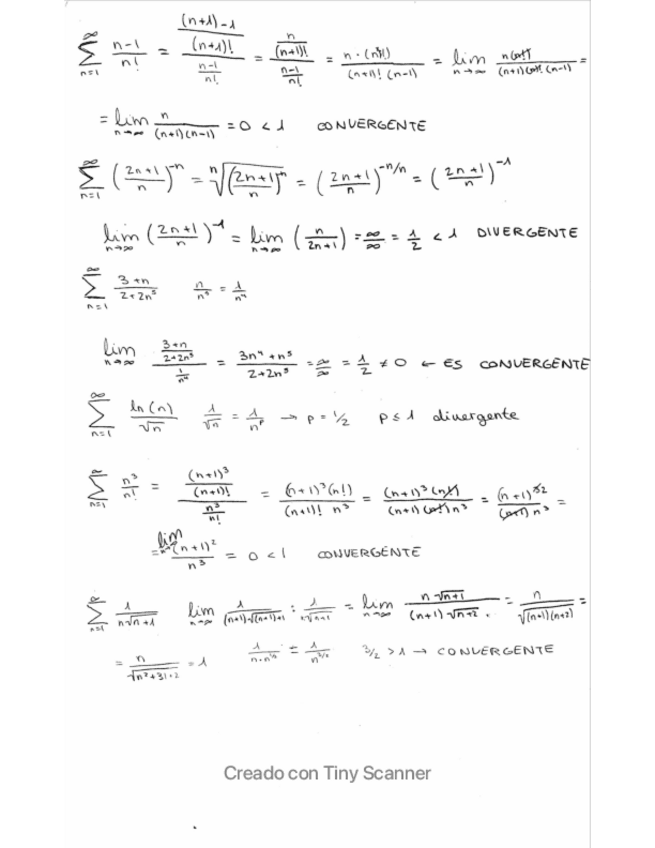 ∞∑n=1 (n-1)/n! = (((n+1)-1)/(n+1)!)/((n-1)/n!) = (n/(n+1)!)/((n-1)/n!) = n·(n!)/((n+1)!(n-1)) = lim n→∞ n(n!)/((n+1)(n!)(n-1)) =
= lim n→∞ n/((n+1)(n-1)) = 0 < 1 CONVERGENTE
∞∑n=1 ((2n+1)/n)^-n = ⁿ√((2n+1)/n)^-n = ((2n+1)/n)^-n/n = ((2n+1)/n)^-1
lim n→∞ ((2n+1)/n)^-1 = lim n→∞ (n/(2n+1)) = ∞/∞ = 1/2 < 1 DIVERGENTE
∞∑n=1 (3+n)/(2+2n⁵) n/n⁵ = 1/n⁴
lim n→∞ ((3+n)/(2+2n⁵))/(1/n⁴) = (3n⁴+n⁵)/(2+2n⁵) = ∞/∞ = 1/2 ≠ 0 ← ES CONVERGENTE
∞∑n=1 ln(n)/√n 1/√n = 1/n^p → p = 1/2 p ≤ 1 divergente
∞∑n=1 n³/n! = ((n+1)³/(n+1)!)/(n³/n!) = (n+1)³(n!)/((n+1)! n³) = (n+1)³(n!)/((n+1)(n!)n³) = (n+1)^3 2/((n+1) n³) =
= lim (n+1)²/n³ = 0 < 1 CONVERGENTE
∞∑n=1 1/(n√n+1) lim n→∞ 1/((n+1)√(n+1)+1) : 1/(n√n+1) = lim n→∞ n√n+1/((n+1)√n+2) = n/√(n+1)(n+2) =
= n/√n²+3n+2 = 1 1/(n·n^1/2) = 1/n^3/2 3/2 > 1 → CONVERGENTE
Creado con Tiny Scanner